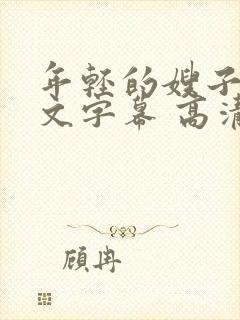 年轻的嫂子
文字幕 高清
顾冉